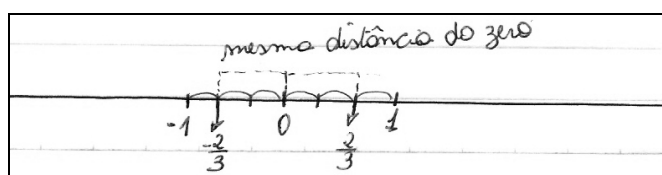 mesma distância do zero
-1 -2/3 0 2/3 1